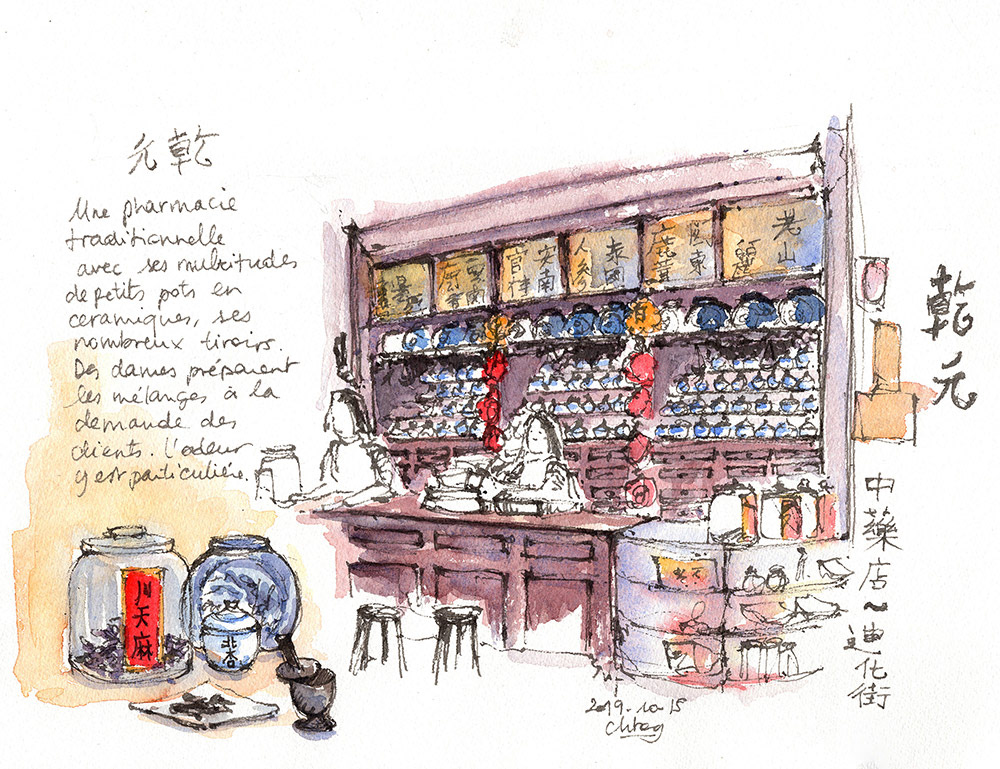 元乾
Une pharmacie
traditionnelle
avec ses multitudes
de petits pots en
céramiques, ses
nombreux tiroirs.
Des dames préparent
les mélanges à la
demande des
clients. L'odeur
y est particulière.
老山
關東
鹿茸
泰國
人參
安南
官桂
乾元
中藥店~迪化街
川天麻
2019-10-15